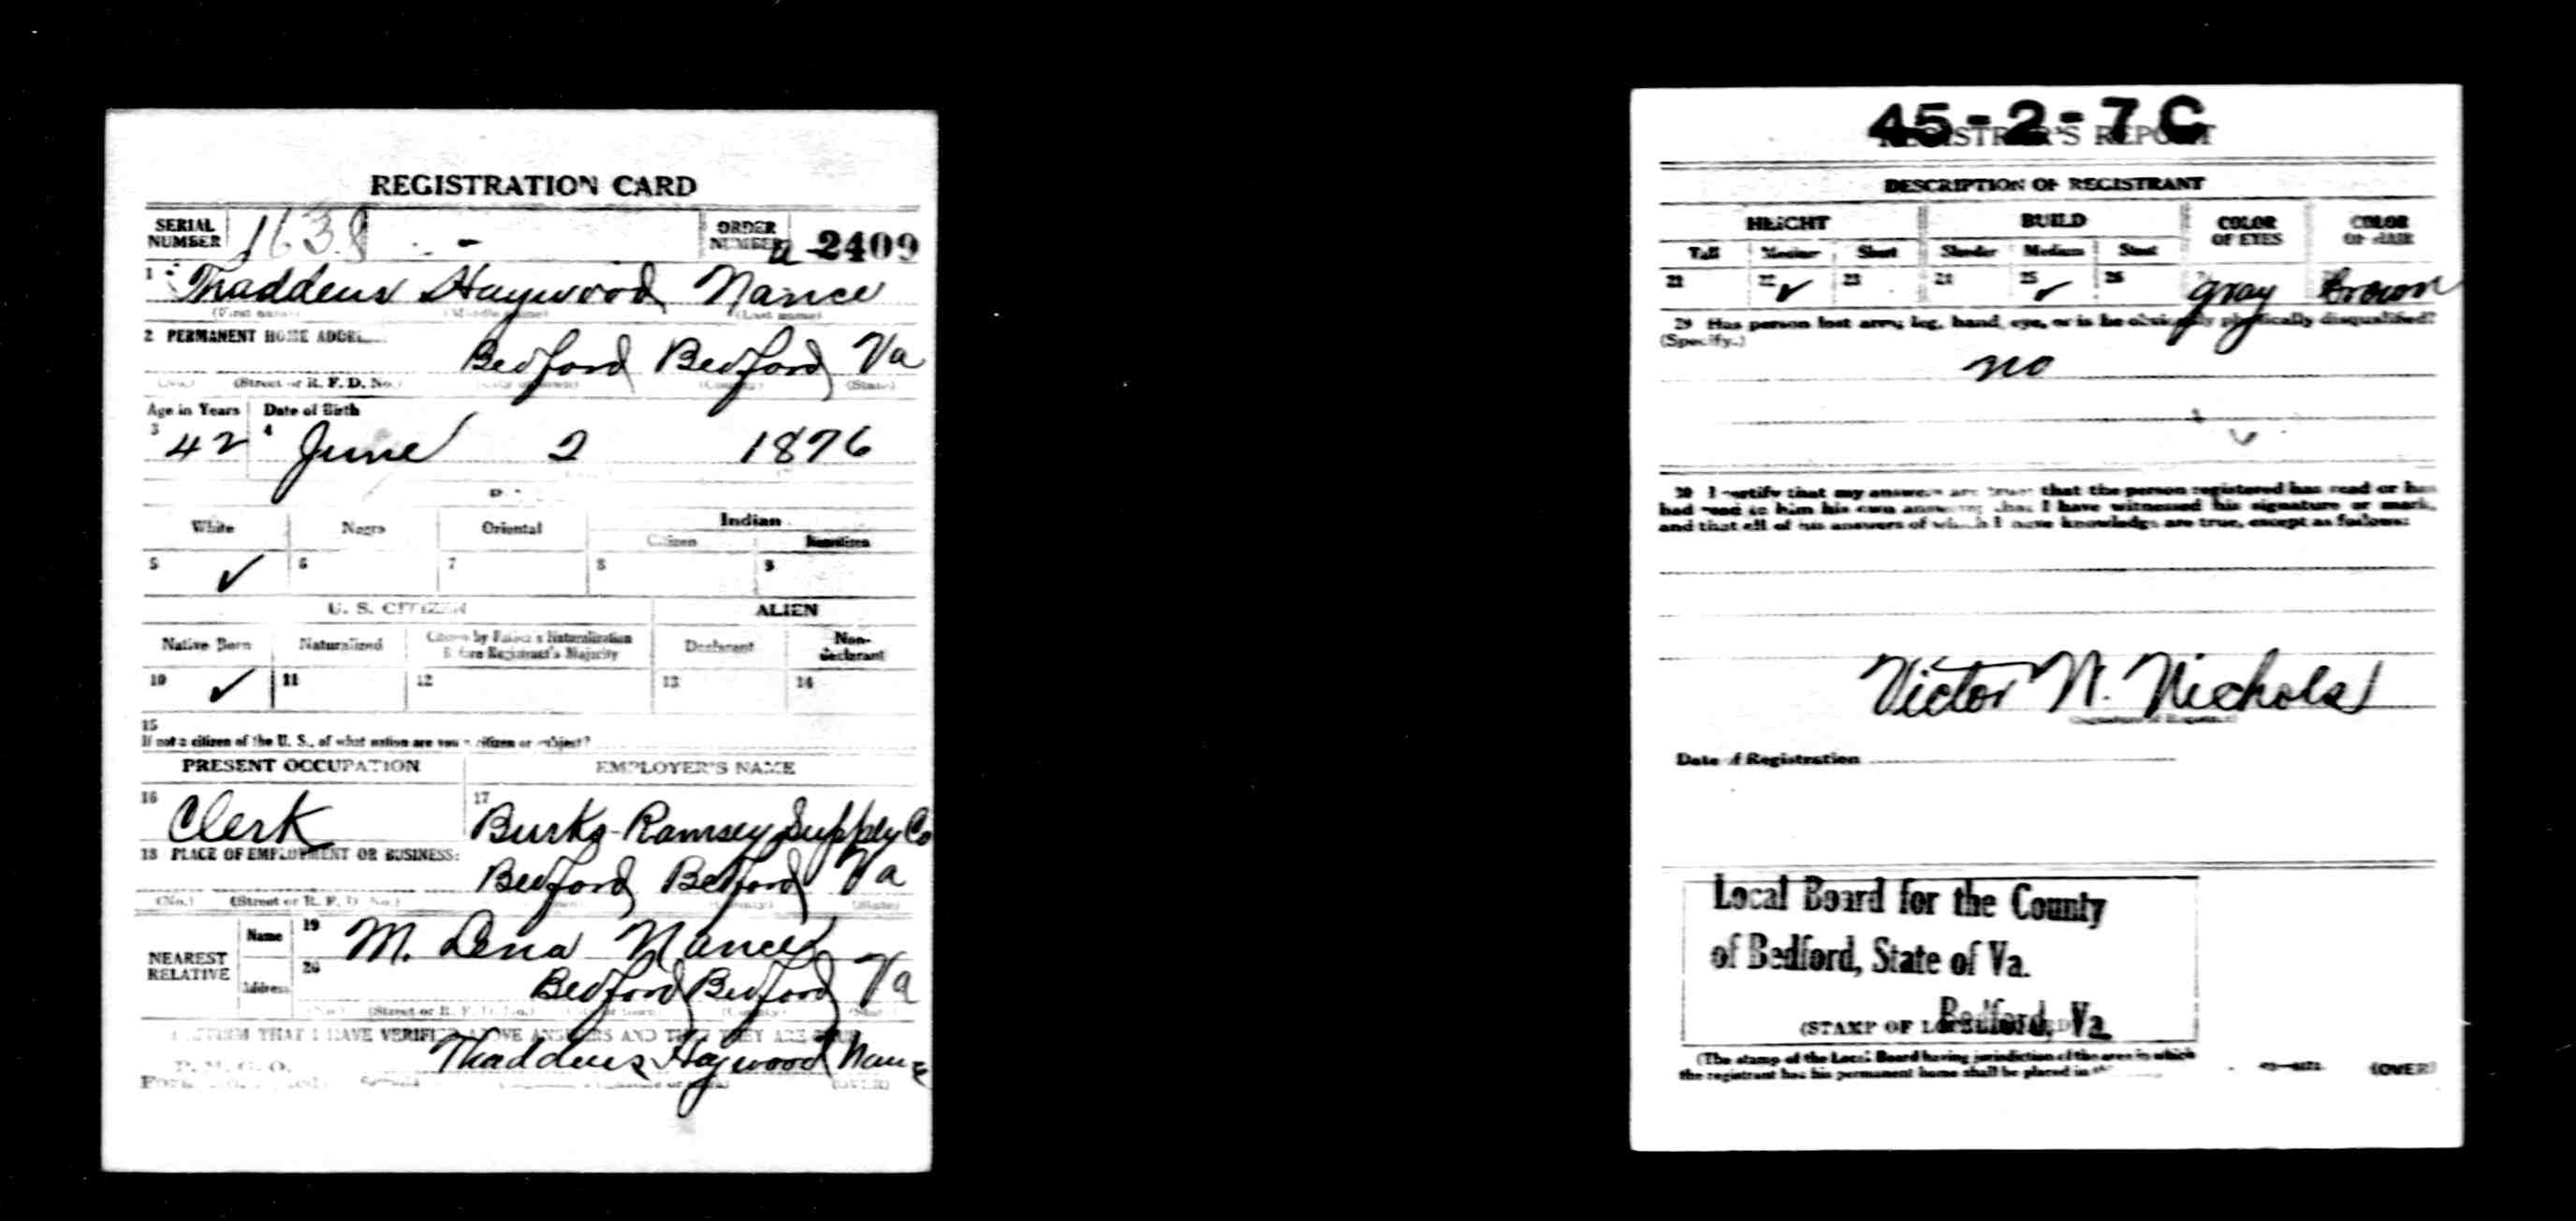 REGISTRATION CARD
SERIAL NUMBER 1638 ORDER NUMBER a 2409
1 Thaddeus Haywood Nance
(First name) (Middle name) (Last name)
2 PERMANENT HOME ADDRESS
Bedford Bedford Va
(No.) (Street or R. F. D. No.) (City or town) (County) (State)
Age in Years Date of Birth
3 42 4 June 2 1876
White Negro Oriental Indian
Citizen
5 ✓ 6 7 8 9
U. S. CITIZEN ALIEN
Native Born Naturalized Citizen by Father's Naturalization Before Registrant's Majority Declarant Non-declarant
10 ✓ 11 12 13 14
15
If not a citizen of the U. S., of what nation are you a citizen or subject?
PRESENT OCCUPATION EMPLOYER'S NAME
16 Clerk 17 Burks-Ramsey Supply Co
18 PLACE OF EMPLOYMENT OR BUSINESS:
Bedford Bedford Va
(No.) (Street or R. F. D. No.) (County) (State)
NEAREST RELATIVE Name 19 M. Lena Nance
Address 20 Bedford Bedford Va
(No.) (Street or R. F. D. No.) (City or town) (County) (State)
I AFFIRM THAT I HAVE VERIFIED ABOVE ANSWERS AND THAT THEY ARE TRUE
P. M. G. O.
Thaddeus Haywood Nance
Form (OVER)
45-2-7 C
REGISTRAR'S REPORT
DESCRIPTION OF REGISTRANT
HEIGHT BUILD COLOR OF EYES COLOR OF HAIR
Tall Medium Short Slender Medium Stout
21 22 ✓ 23 24 25 ✓ 26 gray brown
29 Has person lost arm, leg, hand, eye, or is he obviously physically disqualified?
(Specify.)
no
30 I certify that my answers are true; that the person registered has read or has
had read to him his own answers; that I have witnessed his signature or mark,
and that all of his answers of which I have knowledge are true, except as follows:
Victor N. Nichols
Date of Registration
Local Board for the County
of Bedford, State of Va.
Bedford, Va.
(STAMP OF LOCAL BOARD)
(The stamp of the Local Board having jurisdiction of the area in which
the registrant has his permanent home shall be placed in
(OVER)